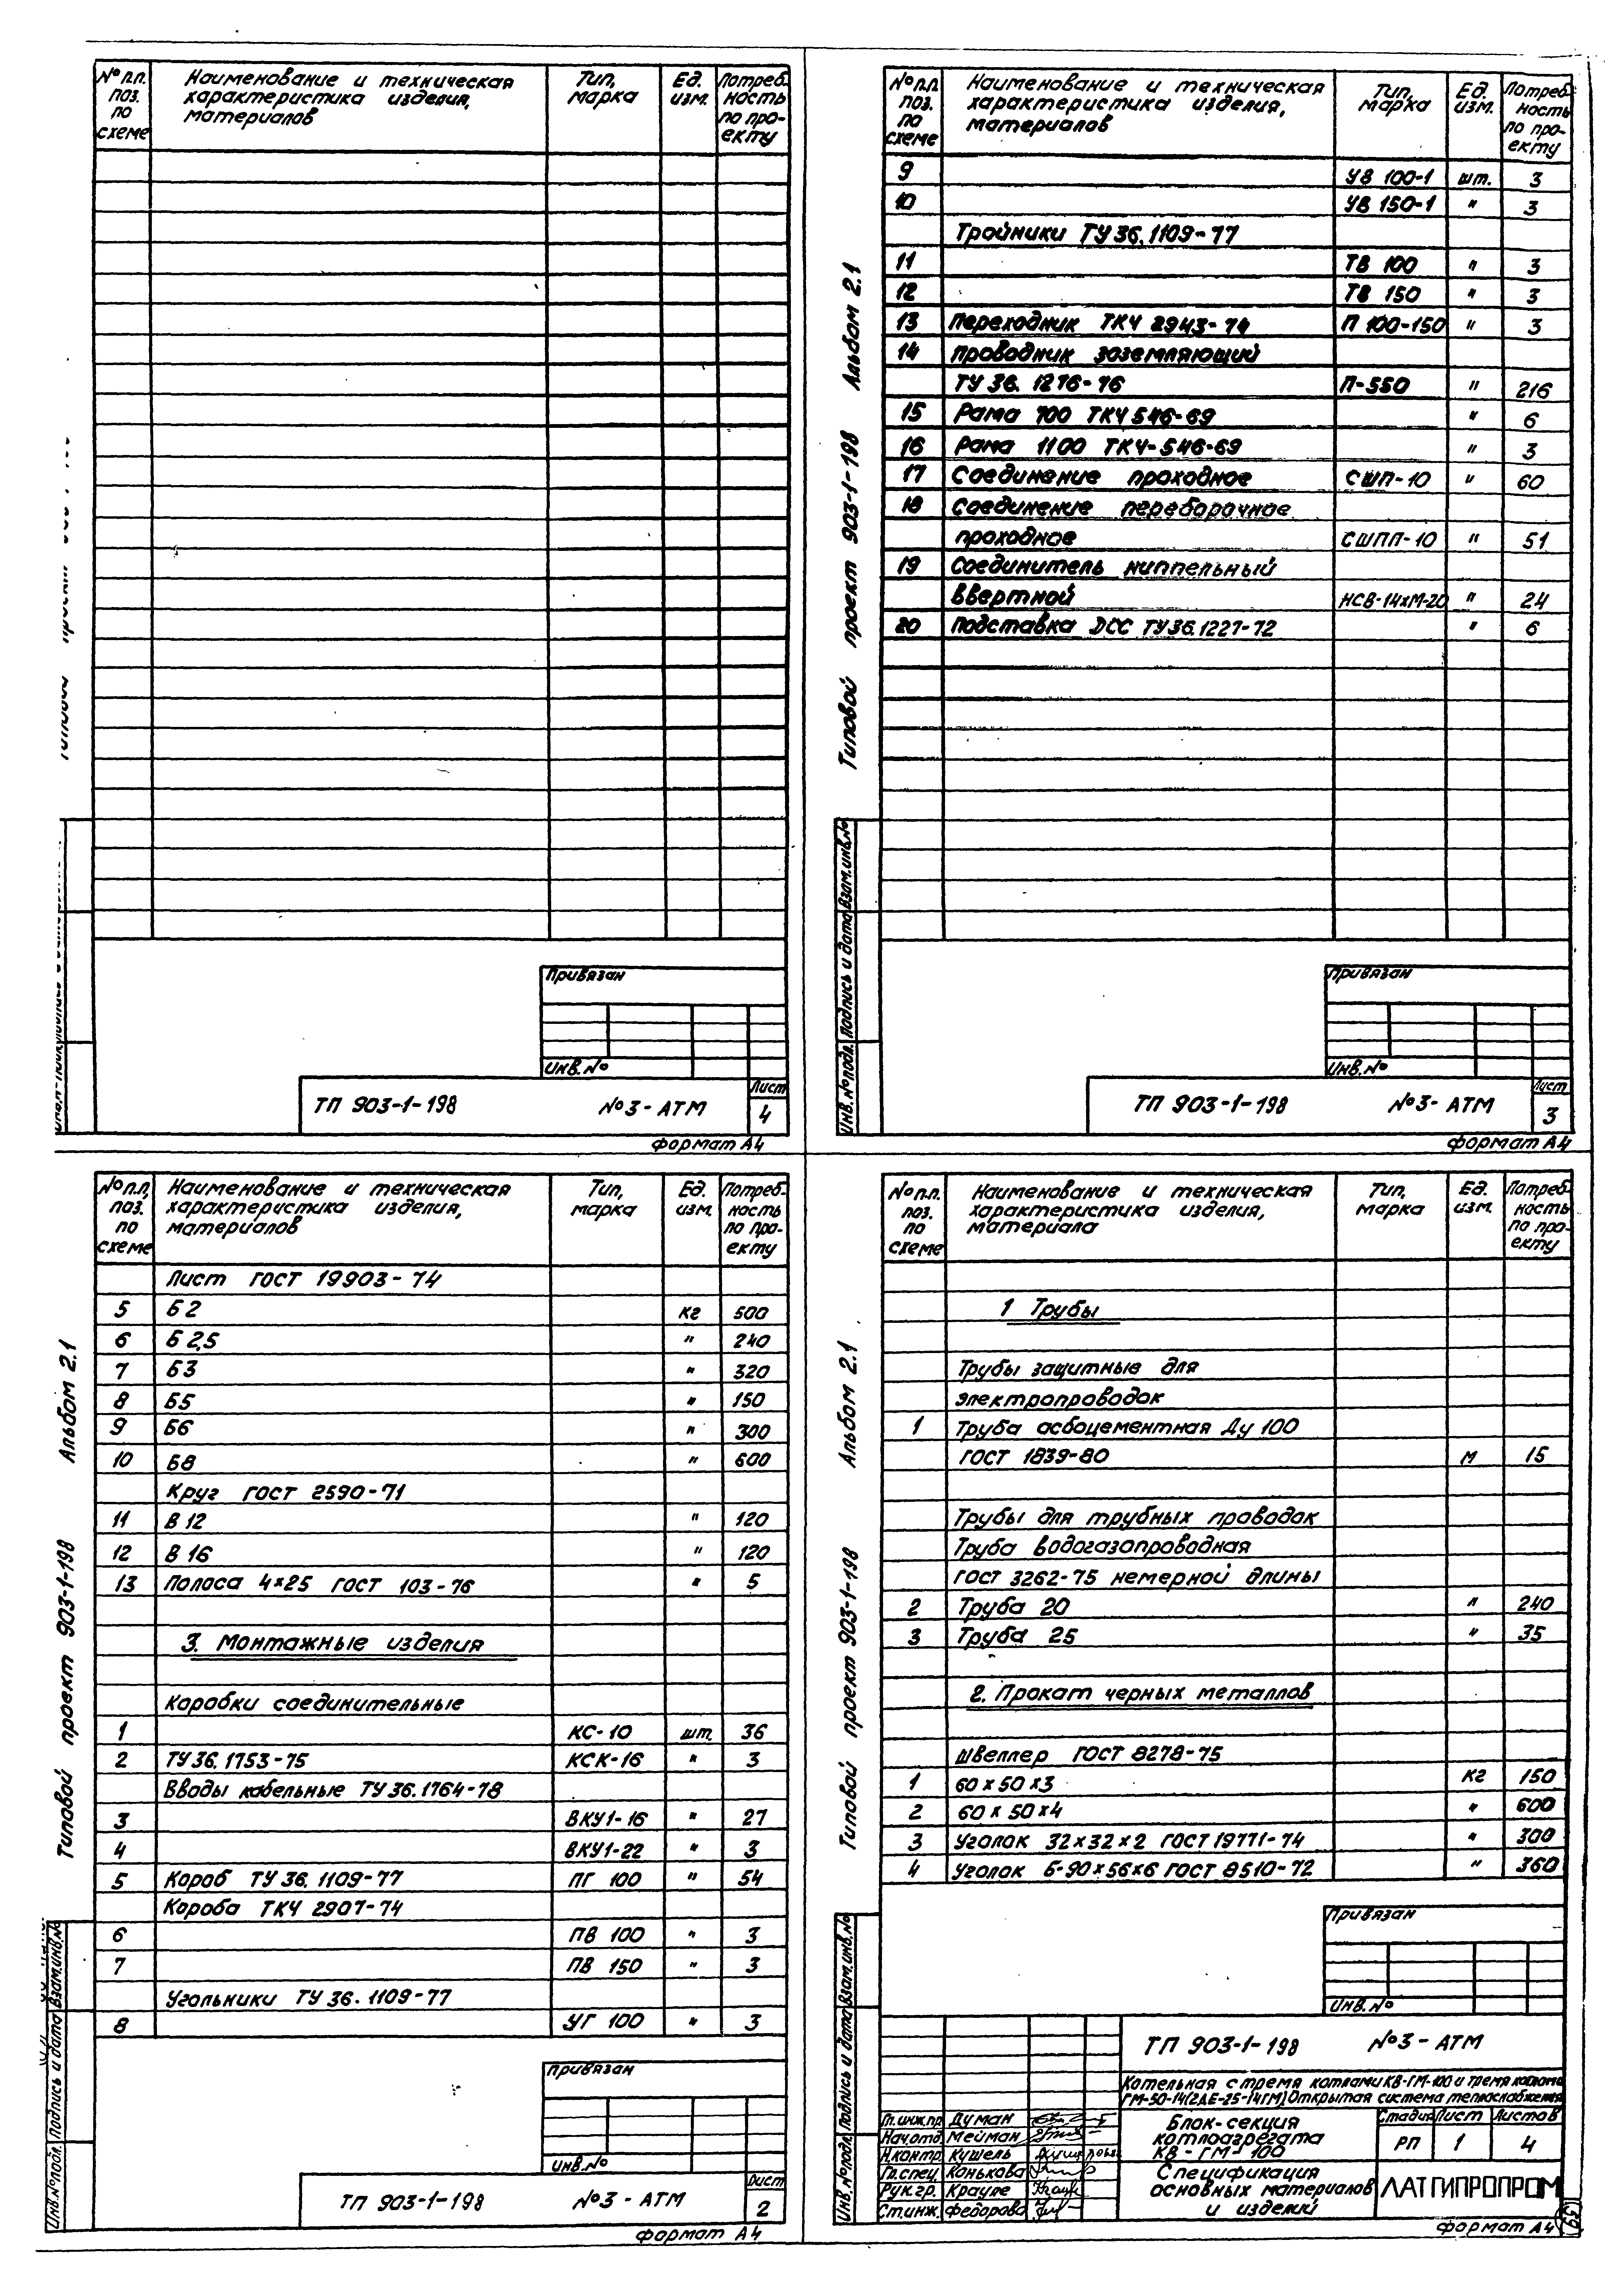 № п.п. поз. по схеме | Наименование и техническая характеристика изделия, материалов | Тип, марка | Ед. изм. | Потребность по проекту
Привязан
Инв.№
ТП 903-1-198 №3-АТМ
Лист
4
Формат А4
Типовой проект 903-1-198 Альбом 2.1
№ п.п. поз. по схеме | Наименование и техническая характеристика изделия, материалов | Тип, марка | Ед. изм. | Потребность по проекту
9 УВ 100-1 шт. 3
10 УВ 150-1 " 3
Тройники ТУ 36.1109-77
11 ТВ 100 " 3
12 ТВ 150 " 3
13 Переходник ТКЧ 2943-74 П 100-150 " 3
14 Проводник заземляющий
ТУ 36.1276-76 П-550 " 216
15 Рама 700 ТКЧ 546-69 " 6
16 Рама 1100 ТКЧ-546-69 " 3
17 Соединение проходное СШП-10 " 60
18 Соединение переборочное
проходное СШПП-10 " 51
19 Соединитель ниппельный
ввертной НСВ-14хМ-20 " 24
20 Подставка ДСС ТУ36.1227-72 " 6
Инв.№ подл. Подпись и дата Взам.инв.№
Привязан
Инв.№
ТП 903-1-198 №3-АТМ
Лист
3
Формат А4
Типовой проект 903-1-198 Альбом 2.1
№ п.п. поз. по схеме | Наименование и техническая характеристика изделия, материалов | Тип, марка | Ед. изм. | Потребность по проекту
Лист ГОСТ 19903-74
5 Б2 кг 500
6 Б 2,5 " 240
7 Б3 " 320
8 Б5 " 150
9 Б6 " 300
10 Б8 " 600
Круг ГОСТ 2590-71
11 В 12 " 120
12 В 16 " 120
13 Полоса 4х25 ГОСТ 103-76 " 5
3. Монтажные изделия
Коробки соединительные
1 КС-10 шт. 36
2 ТУ 36.1753-75 КСК-16 " 3
Вводы кабельные ТУ 36.1764-78
3 ВКУ1-16 " 27
4 ВКУ1-22 " 3
5 Короб ТУ 36.1109-77 ПГ 100 " 54
Короба ТКЧ 2907-74
6 ПВ 100 " 3
7 ПВ 150 " 3
Угольники ТУ 36.1109-77
8 УГ 100 " 3
Инв.№ подл. Подпись и дата Взам.инв.№
Привязан
Инв.№
ТП 903-1-198 №3-АТМ
Лист
2
Формат А4
Типовой проект 903-1-198 Альбом 2.1
№ п.п. поз. по схеме | Наименование и техническая характеристика изделия, материала | Тип, марка | Ед. изм. | Потребность по проекту
1 Трубы
Трубы защитные для
электропроводок
1 Труба асбоцементная Ду 100
ГОСТ 1839-80 м 15
Трубы для трубных проводок
Труба водогазопроводная
ГОСТ 3262-75 немерной длины
2 Труба 20 " 240
3 Труба 25 " 35
2. Прокат черных металлов
Швеллер ГОСТ 8278-75
1 60х50х3 кг 150
2 60х50х4 " 600
3 Уголок 32х32х2 ГОСТ 19771-74 " 300
4 Уголок Б-90х56х6 ГОСТ 8510-72 " 360
Инв.№ подл. Подпись и дата Взам.инв.№
Привязан
Инв.№
ТП 903-1-198 №3-АТМ
Котельная с тремя котлами КВ-ГМ-100 и тремя котлами
ГМ-50-14(2ДЕ-25-14ГМ) Открытая система теплоснабжения
Гл.инж.пр. Думан
Нач.отд. Мейман
Н.контр. Кушель
Гл.спец. Конькова
Рук.гр. Крауле
Ст.инж. Федорова
Блок-секция
котлоагрегата
КВ-ГМ-100
Стадия Лист Листов
РП 1 4
Спецификация
основных материалов
и изделий
ЛАТГИПРОПРОМ
Формат А4
59